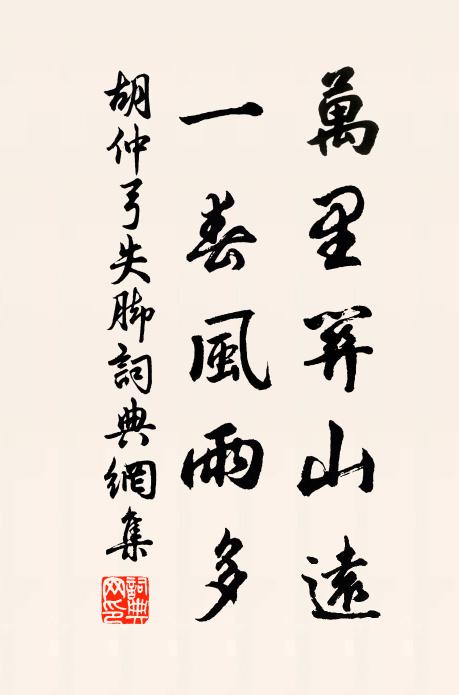 萬里關山遠
一春風雨多
胡仲弓失脚詞典網集
詞典網印